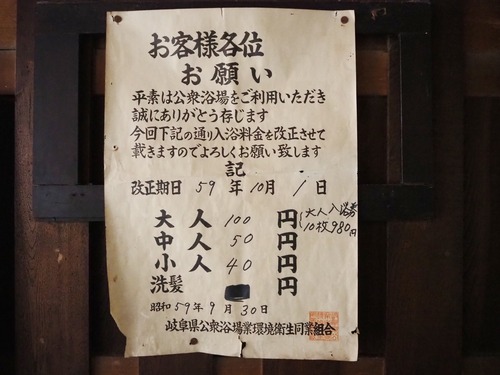 お客様各位
お願い
平素は公衆浴場をご利用いただき
誠にありがとう存じます
今回下記の通り入浴料金を改正させて
載きますのでよろしくお願い致します
記
改正期日 59年10月1日
大人 100円 大人入浴券
10枚980円
中人 50円
小人 40円
洗髪 円
昭和59年9月30日
岐阜県公衆浴場業環境衛生同業組合